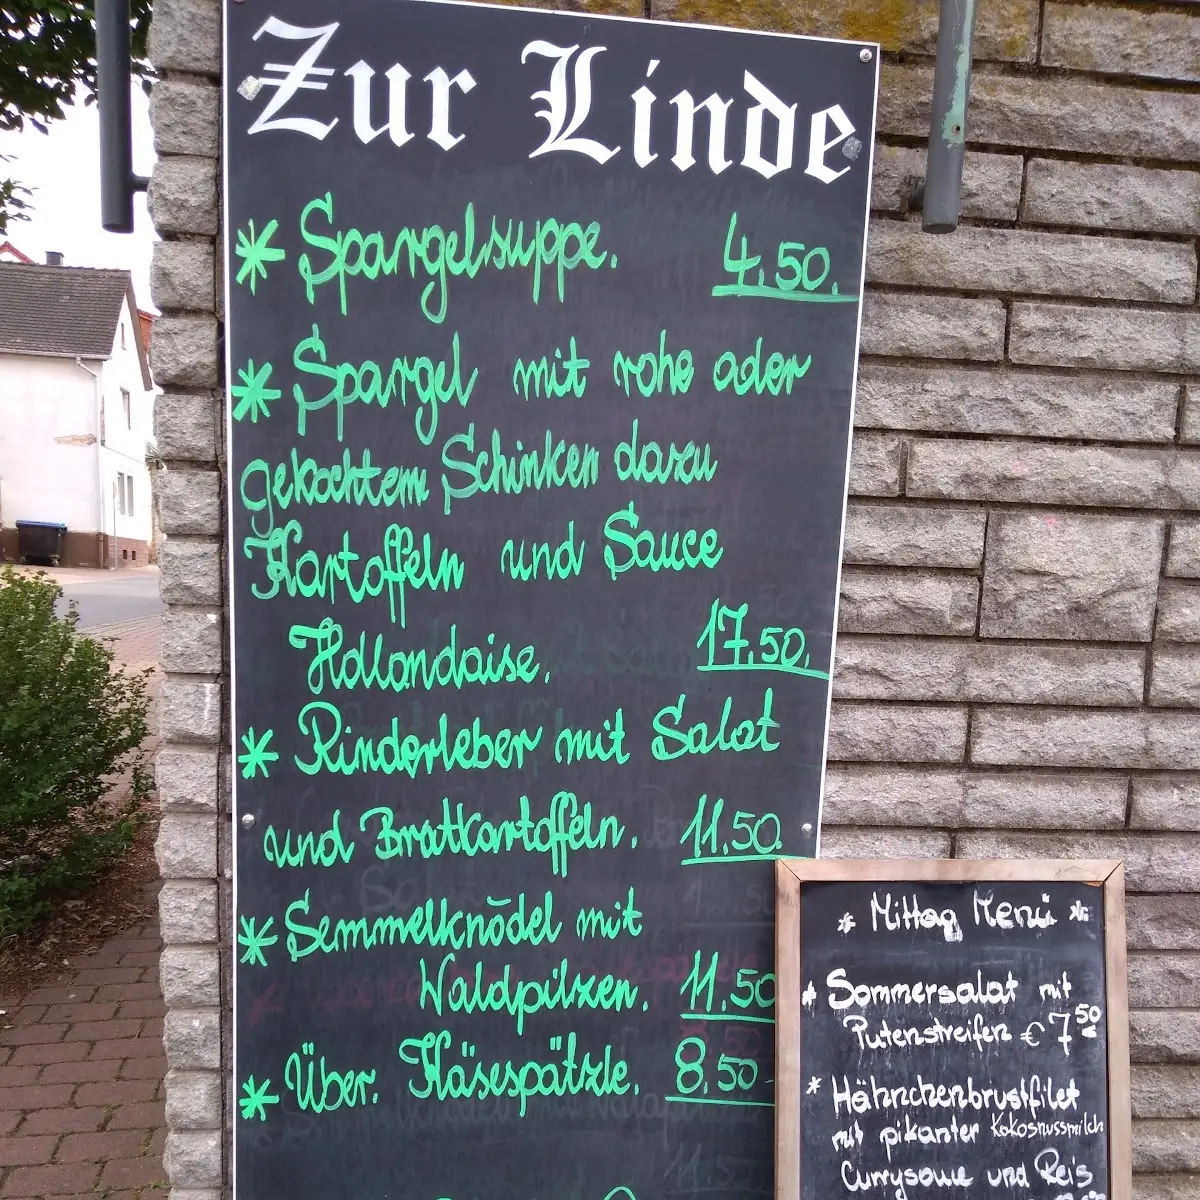 Zur Linde
* Spargelsuppe. 4.50.
* Spargel mit rohe oder
gekochtem Schinken dazu
Kartoffeln und Sauce
Hollandaise. 17.50.
* Rinderleber mit Salat
und Bratkartoffeln. 11.50.
* Semmelknödel mit
Waldpilzen. 11.50
* Über. Käsespätzle. 8.50.
* Mittag Menü *
* Sommersalat mit
Putenstreifen € 7 50
* Hähnchenbrustfilet
mit pikanter Kokosnussmilch
Currysouce und Reis